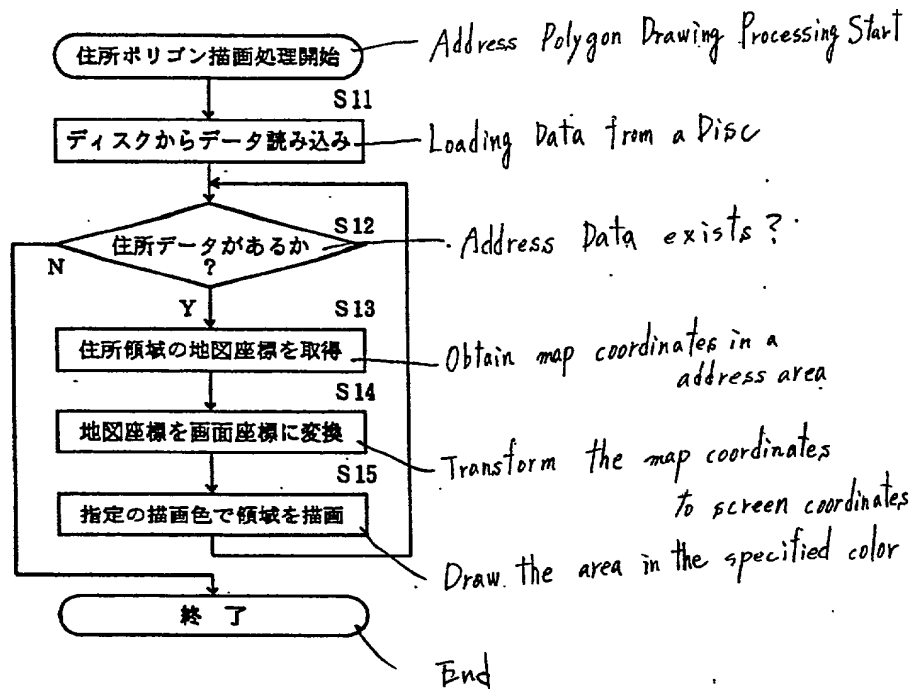 住所ポリゴン描画処理開始
Address Polygon Drawing Processing Start
S11
ディスクからデータ読み込み
Loading Data from a Disc
S12
住所データがあるか
?
Address Data exists?
N
Y
S13
住所領域の地図座標を取得
Obtain map coordinates in a
address area
S14
地図座標を画面座標に変換
Transform the map coordinates
to screen coordinates
S15
指定の描画色で領域を描画
Draw the area in the specified color
終了
End